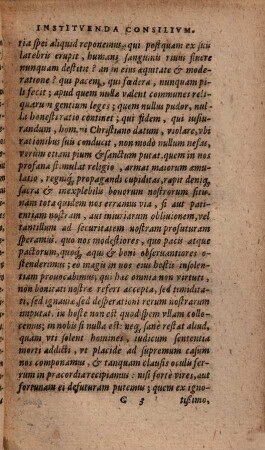 INSTITVENDA CONSILIVM.
tia spei aliquid reponemus, qui postquam ex suis
latebris erupit, humani sanguinis riuos fundere
nunquam destitit? an in eius aequitate & mode-
ratione? qui pacem, qui foedera, nunquam pi-
li fecit; apud quem nulla valent communes reli-
quarum gentium leges; quem nullus pudor, nul-
la honestatis ratio continet; qui fidem, qui iusiu-
randum, homini Christiano datum, violare, vbi
rationibus sui conducit, non modò nullum nefas,
verùm etiam pium & sanctum putat. quem in nos
profana stimulat religio, armat maiorum amulatio,
regniq. propagandi cupiditas, rapit deniq.
sacra & inexplebilis bonorum nostrorum sitis.
nam tota quidem nos erramus via, si aut pa-
tientiam nostram, aut iniuriarum obliuionem, vel
tantillum ad securitatem nostram prosuturam
speramus. quo nos modestiores, quo pacis atque
pactorum, quoq. aqui & boni obseruantiores o-
stenderimus; eo magis in nos eius hostis insolen-
tiam prouocabimus, qui hac omnia non virtuti,
non bonitati nostrae refert accepta, sed timidita-
ti, sed ignauia, sed desperationi rerum nostrarum
imputat. in hoste non est quod spem vllam collo-
cemus; in nobis si nulla est: neq. sanè restat aliud,
quàm vti solent homines, iudicum sententia
morti addicti, vt placide ad supremum casum
nos componamus, & tanquam clausis oculis fer-
rum in praecordia recipiamus: nisi forte vires, aut
fortunam ei defuturam putemus; quem ex igno-
G 3 tissimo,